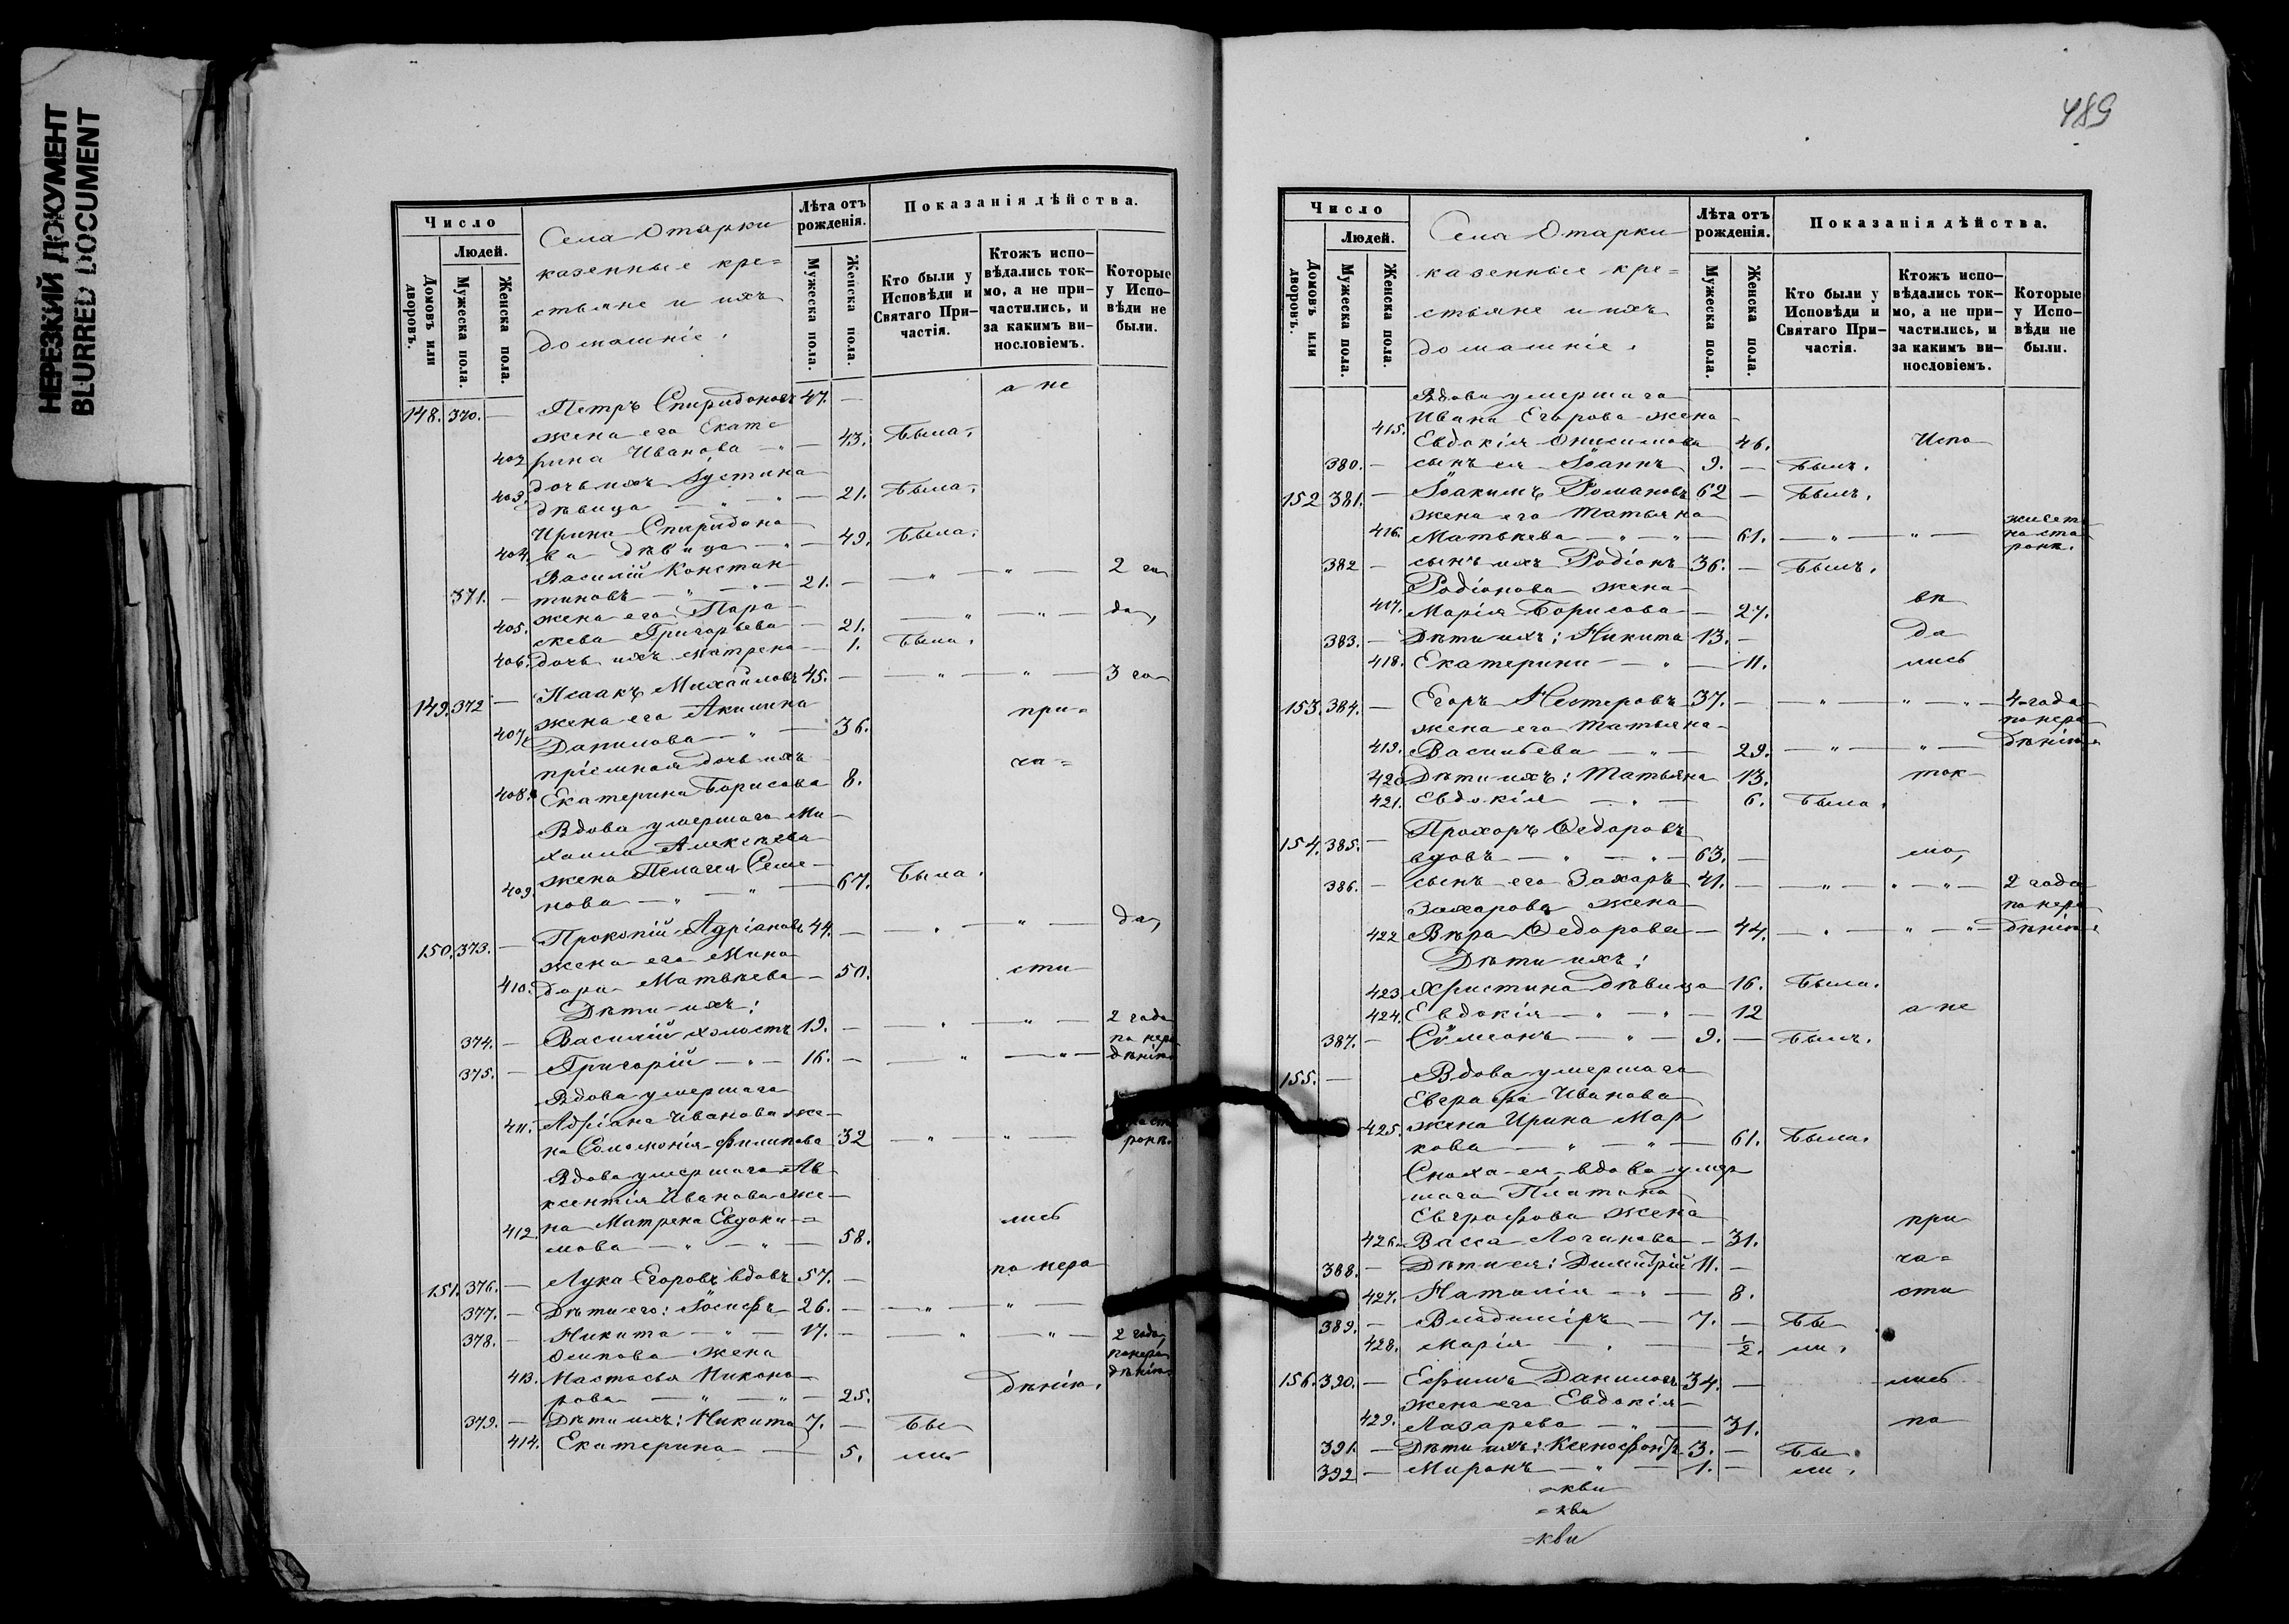 НЕРЕЗКИЙ ДОКУМЕНТ
BLURRED DOCUMENT
Число
Людей.
Домовъ или дворовъ.
Мужеска пола.
Женска пола.
Села Отарки
казенные кре=
стьяне и ихъ
домашніе.
Лѣта отъ рожденія.
Мужеска пола.
Женска пола.
Показанія дѣйства.
Кто были у Исповѣди и Святаго Причастія.
Ктожъ исповѣдались токмо, а не причастились, и за какимъ винословіемъ.
Которые у Исповѣди не были.
148. 370. — Петръ Спиридоновъ 47. — а не
жена его Екате
402 рина Иванова — „ — 43. была.
дочь ихъ Іустина
403. дѣвица — „ — 21. была.
Ирина Спиридоно
404. ва дѣвица — „ — 49. была.
Василій Констан
371. — тиновъ — „ — 21. — — „ — „ — 2 го
жена его Пара
405. скева Григорьева — 21. — „ — „ — да,
406. дочь ихъ Матрена — 1. была.
149. 372 — Исаакъ Михайловъ 45. — — „ — „ — 3 го
жена его Акилина
407. Данилова — „ — 36. при=
пріемная дочь ихъ
408. Екатерина Борисова 8. ча=
Вдова умершаго Ми
хаила Алексѣева
жена Пелагея Семе
409. нова — „ — „ — 67. была.
150. 373. — Прокопій Адріановъ 44. — — „ — „ — да,
жена его Мино
410. дора Матвѣева — 50. сти
Дѣти ихъ:
374. — Василій холостъ 19. — — „ — „ — 2 года
по нера
375. — Григорій — „ — 16. — — „ — „ — дѣнію
Вдова умершаго
411. Адріана Иванова же
на Соломонія Филипова 32 — „ — „ —
роне.
Вдова умершаго Ав
ксентія Иванова же
412. на Матрена Евдоки =
мова — „ — „ — 58. лись
151. 376. — Лука Егоровъ вдовъ 57. — по нера
377. — Дѣти его: Іосифъ 26. — — „ — „ —
378. — Никита — „ — 17. — — „ — „ — 2 года
Осипова жена по нера
413. Настасья Никоно дѣнію
рова — „ — „ — 25. дѣнію.
379. — Дѣти ихъ: Никита 7. — бы
414. Екатерина — 5. ли.
489
Число
Людей.
Домовъ или дворовъ.
Мужеска пола.
Женска пола.
Села Отарки
казенные кре=
стьяне и ихъ
домашніе.
Лѣта отъ рожденія.
Мужеска пола.
Женска пола.
Показанія дѣйства.
Кто были у Исповѣди и Святаго Причастія.
Ктожъ исповѣдались токмо, а не причастились, и за какимъ винословіемъ.
Которые у Исповѣди не были.
Вдова умершаго
Ивана Егорова жена
415. Евдокія Онисимова 46. Испо
380. — сынъ ея Іоаннъ 9. — былъ.
152 381. — Іоакимъ Романовъ 62 — былъ.
жена его Татьяна живет
416. Матвѣева — „ — „ — 61. — „ — „ — на сто
роне.
382 — сынъ ихъ Родіонъ 36. — былъ.
Родіонова жена
417. Марія Борисова — 27. вѣ
383. — Дѣти ихъ: Никита 13. — да
418. Екатерина — „ — 11. лись
153. 384. — Егоръ Нестеровъ 37. — — „ — „ — „ — 4 года
жена его Татьяна по нера
419. Васильева — „ — 29. — „ — „ — дѣнію.
420 Дѣти ихъ: Татьяна 13. ток
421. Евдокія — „ — 6. была.
154. 385. — Прохоръ Ѳедоровъ
вдовъ — „ — „ — 63. — мо,
386. — сынъ его Захаръ 41. — — „ — „ — „ — 2 года
Захарова жена по нера
422 Вѣра Ѳедорова — 44. — „ — „ — „ — дѣнію.
Дѣти ихъ:
423. Христина дѣвица 16. была.
424. Евдокія — „ — „ — 12 а не
387. — Сѵмеонъ — „ — 9. — былъ.
155. — Вдова умершаго
Евграфа Иванова
425. жена Ирина Мар
кова — „ — „ — 61. была.
Сноха ея вдова умер
шаго Платона
Евграфова жена
426. Васса Логинова — 31. при
388. — Дѣти ея: Димитрій 11. — ча=
427. Наталія — „ — 8. сти
389. — Владиміръ — 7. — бы
428. Марія — „ — ½. ли.
156. 390. — Ефимъ Даниловъ 34. — лись
жена его Евдокія
429. Лазарева — „ — 31. по
391. — Дѣти ихъ: Ксенофонтъ 3. — бы
392 — Миронъ — „ — 1. — ли.
=кви
=кви
=кви